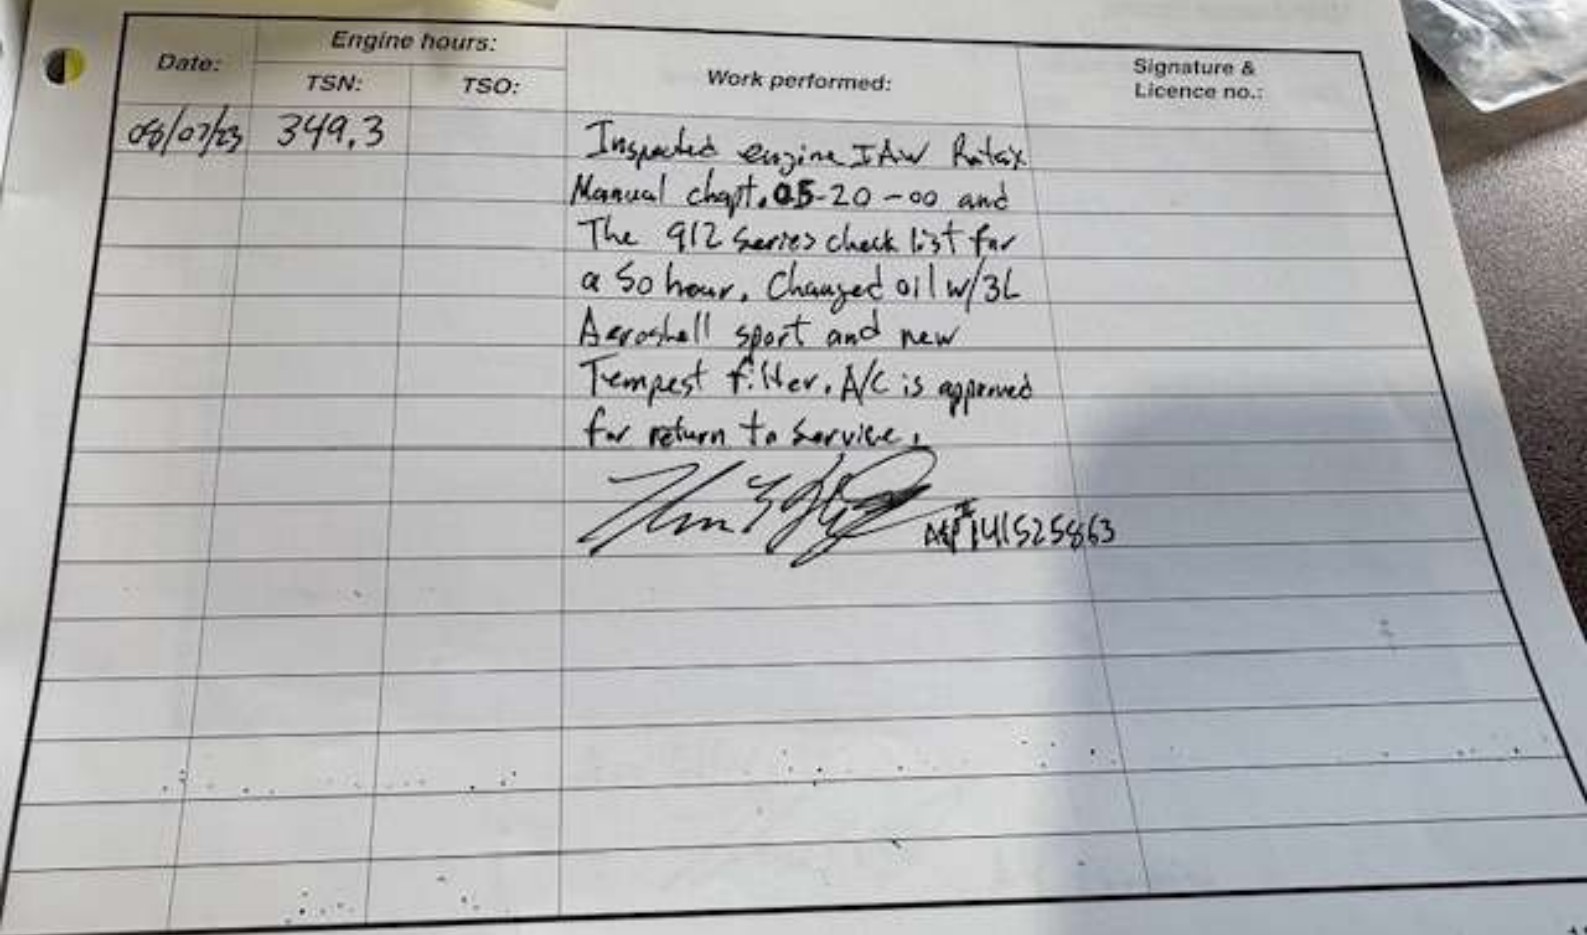 Date:
Engine hours:
TSN:
TSO:
Work performed:
Signature &
Licence no.:
08/07/23 349.3
Inspected engine IAW Rotax
Manual chapt. 05-20-00 and
The 912 series check list for
a 50 hour. Changed oil w/3L
Aeroshell sport and new
Tempest filter. A/C is approved
for return to service.
A&P# 141525863